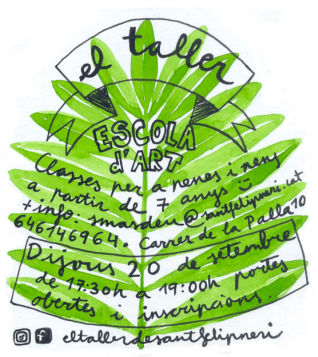 el taller
ESCOLA
d'ART
Classes per a nenes i nens
a partir de 7 anys
+info. smasdeu@santfelipneri.cat
646146964. Carrer de la Palla 10
Dijous 20 de setembre
de 17:30h a 19:00h portes
obertes i inscripcions.
eltallerdesantfelipneri